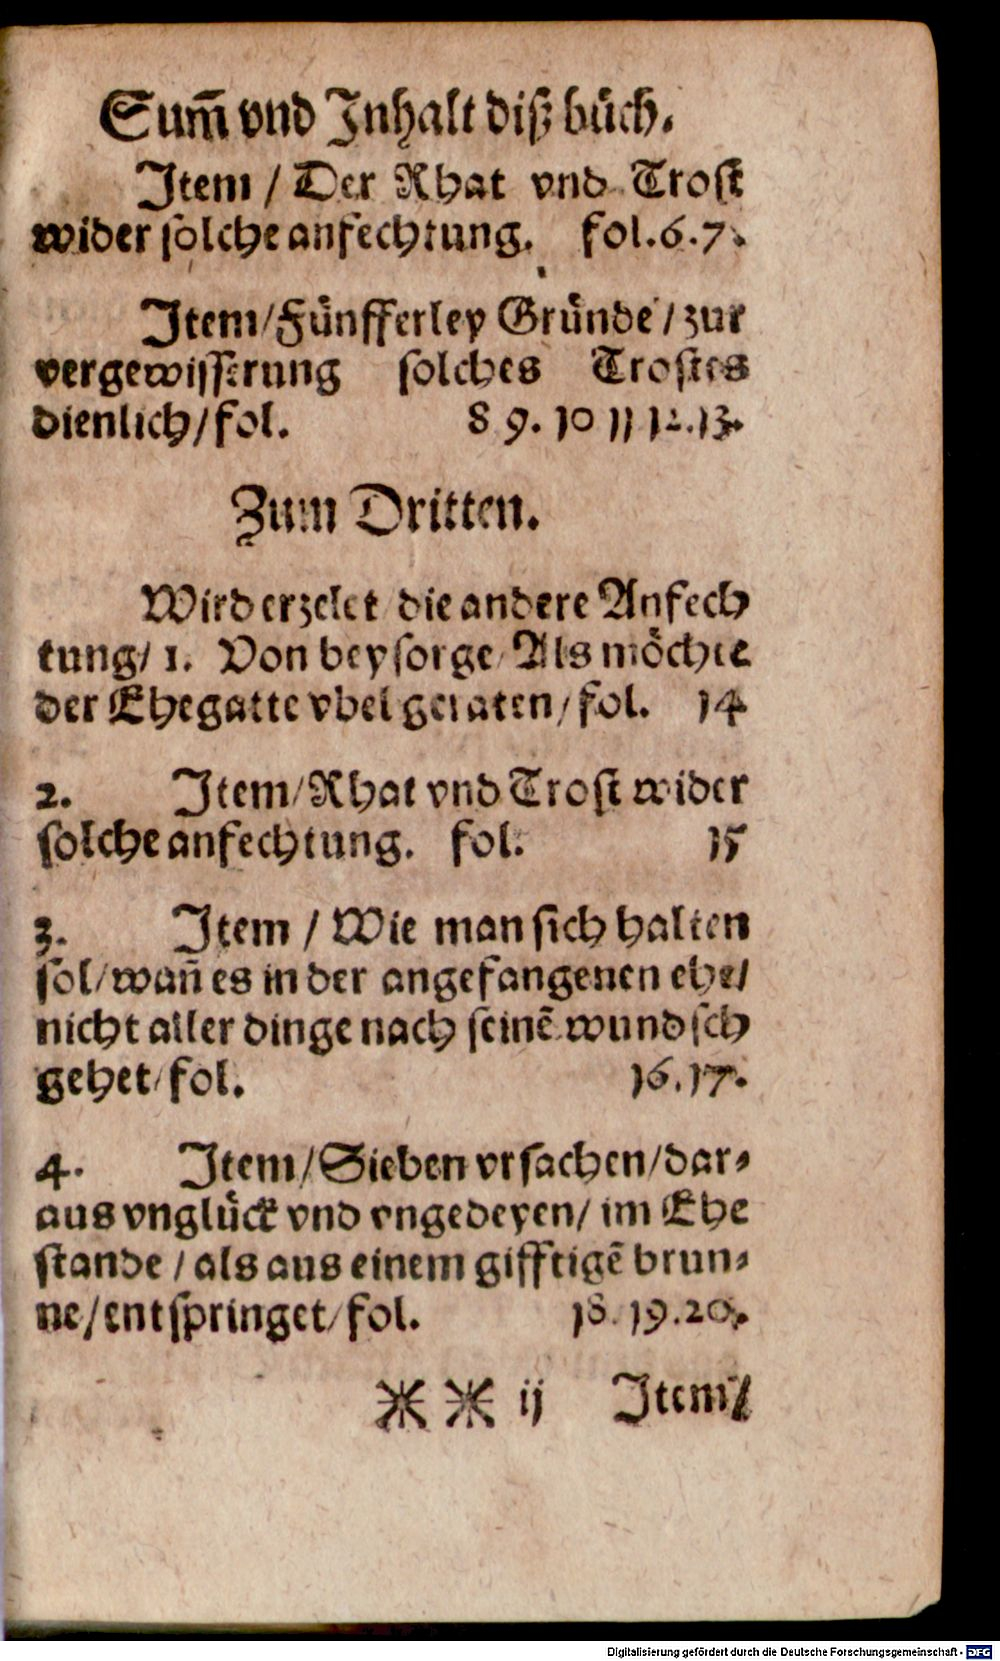 Sum̄ vnd Inhalt diß bůch.
Item / Der Rhat vnd Trost
wider solche anfechtung. fol. 6. 7.
Item / Fünfferley Gründe / zur
vergewisserung solches Trostes
dienlich / fol. 8 9. 10 11 12. 13.
Zum Dritten.
Wird erzelet die andere Anfech
tung / 1. Von beysorge / Als möchte
der Ehegatte vbel geraten / fol. 14
2. Item / Rhat vnd Trost wider
solche anfechtung. fol. 15
3. Item / Wie man sich halten
sol / wañ es in der angefangenen ehe /
nicht aller dinge nach seinē wundsch
gehet / fol. 16. 17.
4. Item / Sieben vrsachen / dar-
aus vnglück vnd vngedeyen / im Ehe
stande / als aus einem gifftigē brun-
ne / entspringet / fol. 18. 19. 20.
** ij Item /
Digitalisierung gefördert durch die Deutsche Forschungsgemeinschaft - DFG